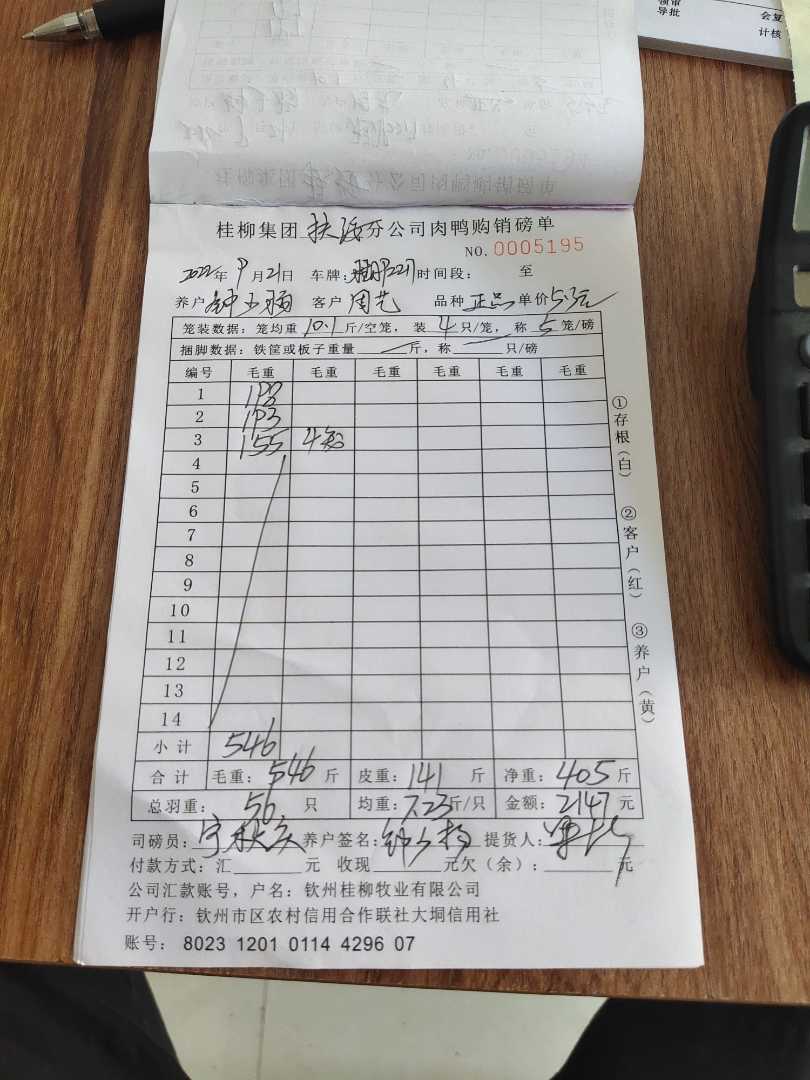 领审
导批
会复
计核
桂柳集团 扶浍分公司肉鸭购销磅单
NO. 0005195
2022年 9月21日 车牌: 时间段: 至
养户 客户 周艺 品种 正品 单价 5.3元
笼装数据: 笼均重 10.1 斤/空笼, 装 4 只/笼, 称 5 笼/磅
捆脚数据: 铁筐或板子重量 斤, 称 只/磅
编号 毛重 毛重 毛重 毛重 毛重 毛重
1 198
2 193
3 155 4笼
4
5
6
7
8
9
10
11
12
13
14
小计 546
合计 毛重: 546 斤 皮重: 141 斤 净重: 405 斤
总羽重: 56 只 均重: 7.23 斤/只 金额: 2147 元
司磅员: 养户签名: 提货人:
付款方式: 汇 元 收现 元欠(余): 元
公司汇款账号, 户名: 钦州桂柳牧业有限公司
开户行: 钦州市区农村信用合作联社大垌信用社
账号: 8023 1201 0114 4296 07
①存根(白)
②客户(红)
③养户(黄)